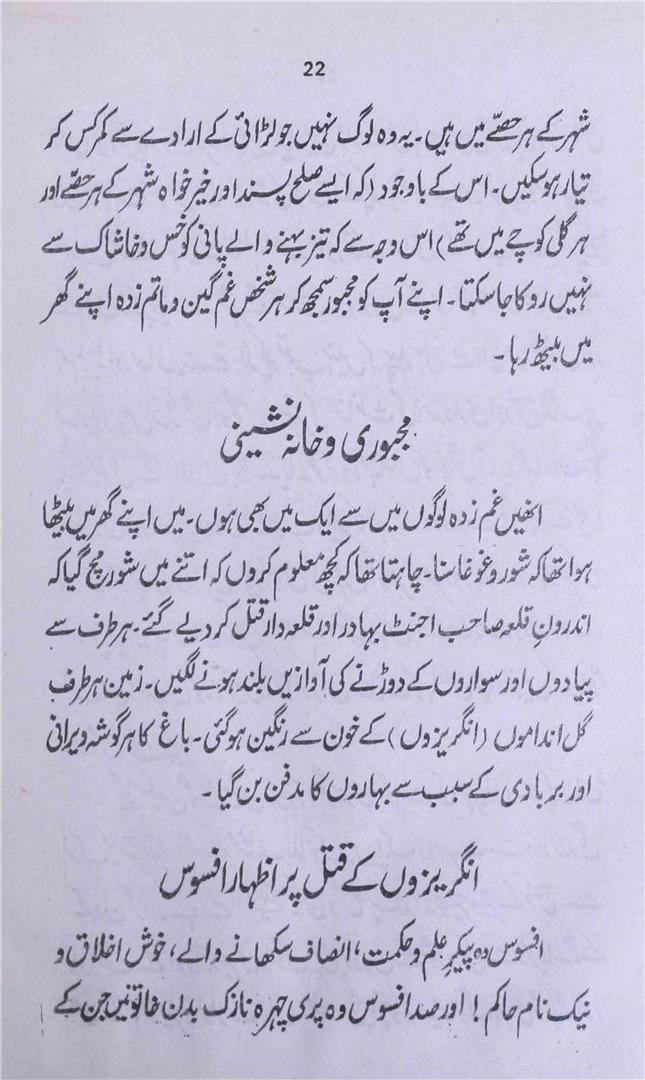 22
شہر کے ہر حصّے میں ہیں۔ یہ وہ لوگ نہیں جو لڑائی کے ارادے سے کمر کس کر
تیار ہو سکیں۔ اس کے باوجود (کہ ایسے صلح پسند اور خیر خواہ شہر کے ہر حصّے اور
ہر گلی کوچے میں تھے) اس وجہ سے کہ تیز بہنے والے پانی کو خس و خاشاک سے
نہیں روکا جا سکتا۔ اپنے آپ کو مجبور سمجھ کر ہر شخص غم گین و ماتم زدہ اپنے گھر
میں بیٹھ رہا۔
مجبوری و خانہ نشینی
انھیں غم زدہ لوگوں میں سے ایک میں بھی ہوں۔ میں اپنے گھر میں بیٹھا
ہوا تھا کہ شور و غوغا سنا۔ چاہتا تھا کہ کچھ معلوم کروں کہ اتنے میں شور مچ گیا کہ
اندرونِ قلعہ صاحب اجنٹ بہادر اور قلعہ دار قتل کر دیے گئے۔ ہر طرف سے
پیادوں اور سواروں کے دوڑنے کی آوازیں بلند ہونے لگیں۔ زمین ہر طرف
گل انداموں (انگریزوں) کے خون سے رنگین ہو گئی۔ باغ کا ہر گوشہ ویرانی
اور بربادی کے سبب سے بہاروں کا مدفن بن گیا۔
انگریزوں کے قتل پر اظہار افسوس
افسوس وہ پیکرِ علم و حکمت، انصاف سکھانے والے، خوش اخلاق و
نیک نام حاکم! اور صد افسوس وہ پری چہرہ نازک بدن خاتونیں جن کے